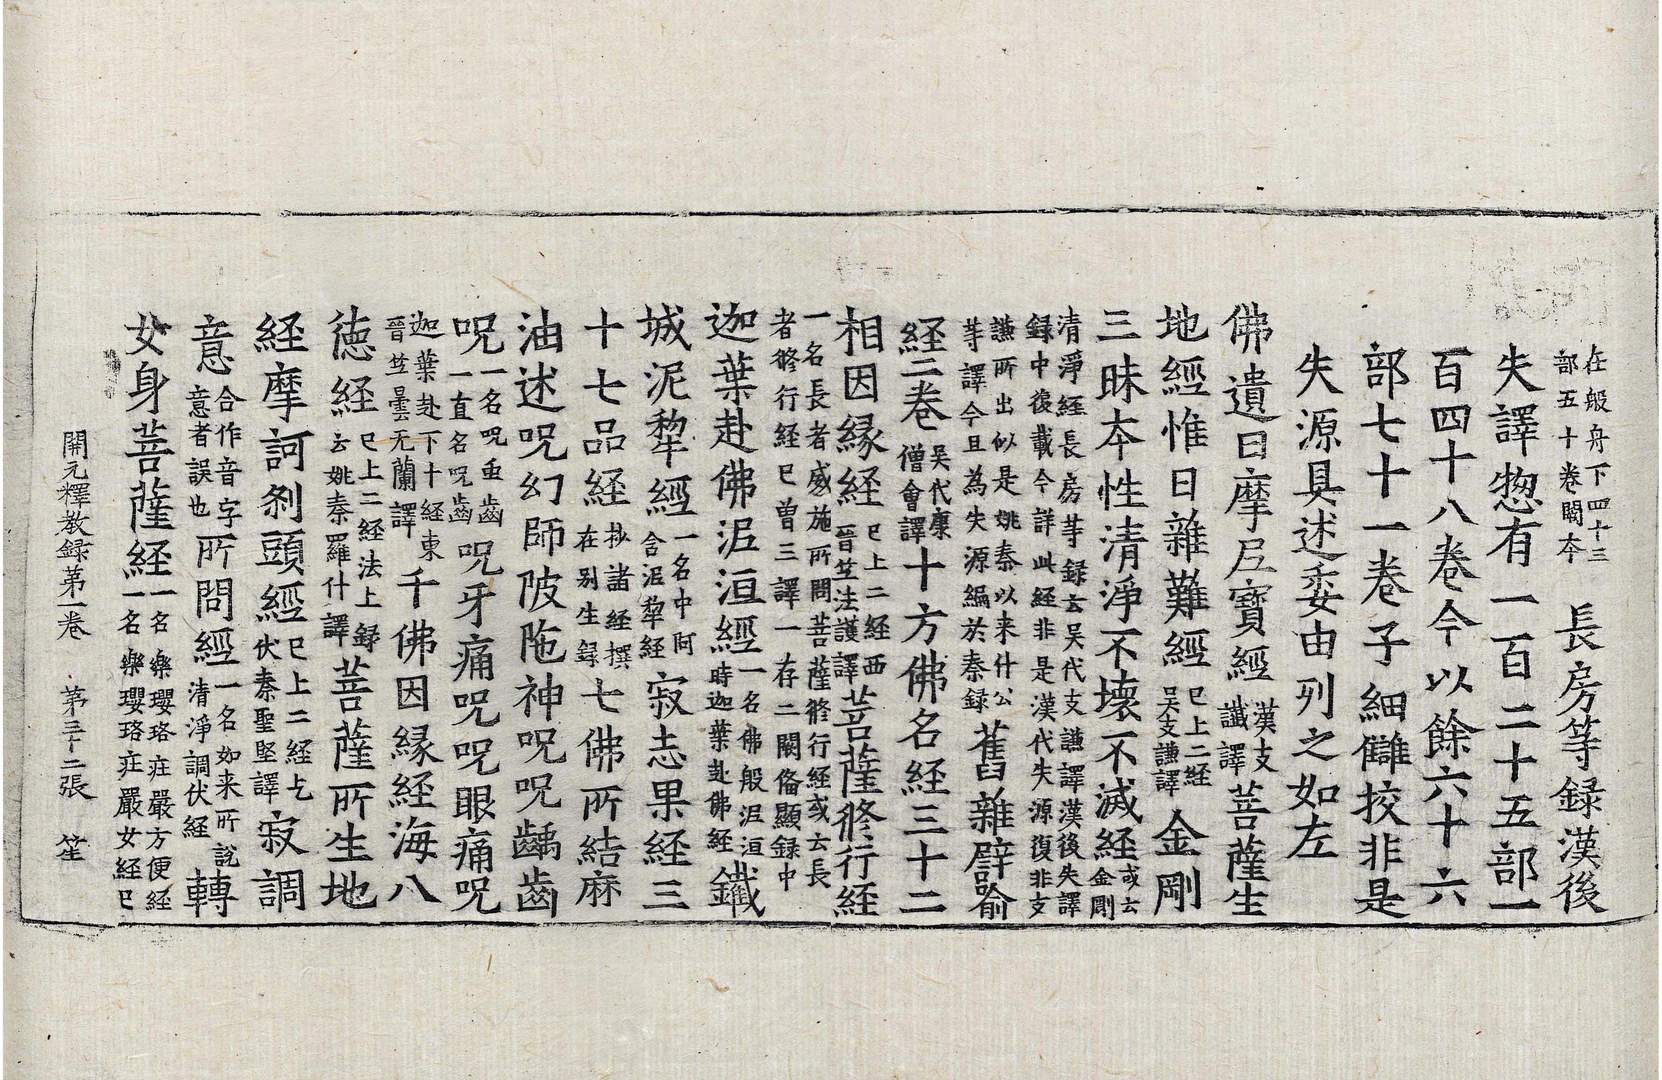 在般舟下四十三部五十卷闕夲　長房等録漢後
失譯惣有一百二十五部一
百四十八卷今以餘六十六
部七十一卷子細讎挍非是
失源具述委由列之如左
佛遺日摩尼寶經漢支讖譯菩薩生
地經惟日雜難經巳上二經吴支謙譯金剛
三昧夲性清淨不壞不滅経或云金剛
清淨経長房等録云吴代支謙譯漢後失譯録中復載今詳此経非是漢代失源復非支
謙所出似是姚秦以来什公等譯今且為失源編於秦録舊雜譬喻
経二卷吴代康僧會譯十方佛名経三十二
相因縁経巳上二経西晉竺法護譯菩薩修行経
一名長者威施所問菩薩修行経或云長者修行経巳曽三譯一存二闕俻顯録中
迦葉赴佛泥洹經一名佛般泥洹時迦葉赴佛経鐵
城泥犂經一名中阿含泥犂経寂志果経三
十七品経抄諸経撰在别生録七佛所結麻
油述呪幻師陂陁神呪呪齲齒
呪一名呪虫齒一直名呪齒呪牙痛呪呪眼痛呪
迦葉赴下十経東晉竺曇无蘭譯千佛因縁経海八
徳経巳上二経法上録云姚秦羅什譯菩薩所生地
経摩訶刹頭經巳上二経乞伏秦聖堅譯寂調
意合作音字意者誤也所問經一名如来所說清淨調伏経轉
女身菩薩経一名樂瓔珞莊嚴方便経一名樂瓔珞莊嚴女経巳
開元釋教録第一卷　第三十二張　笙